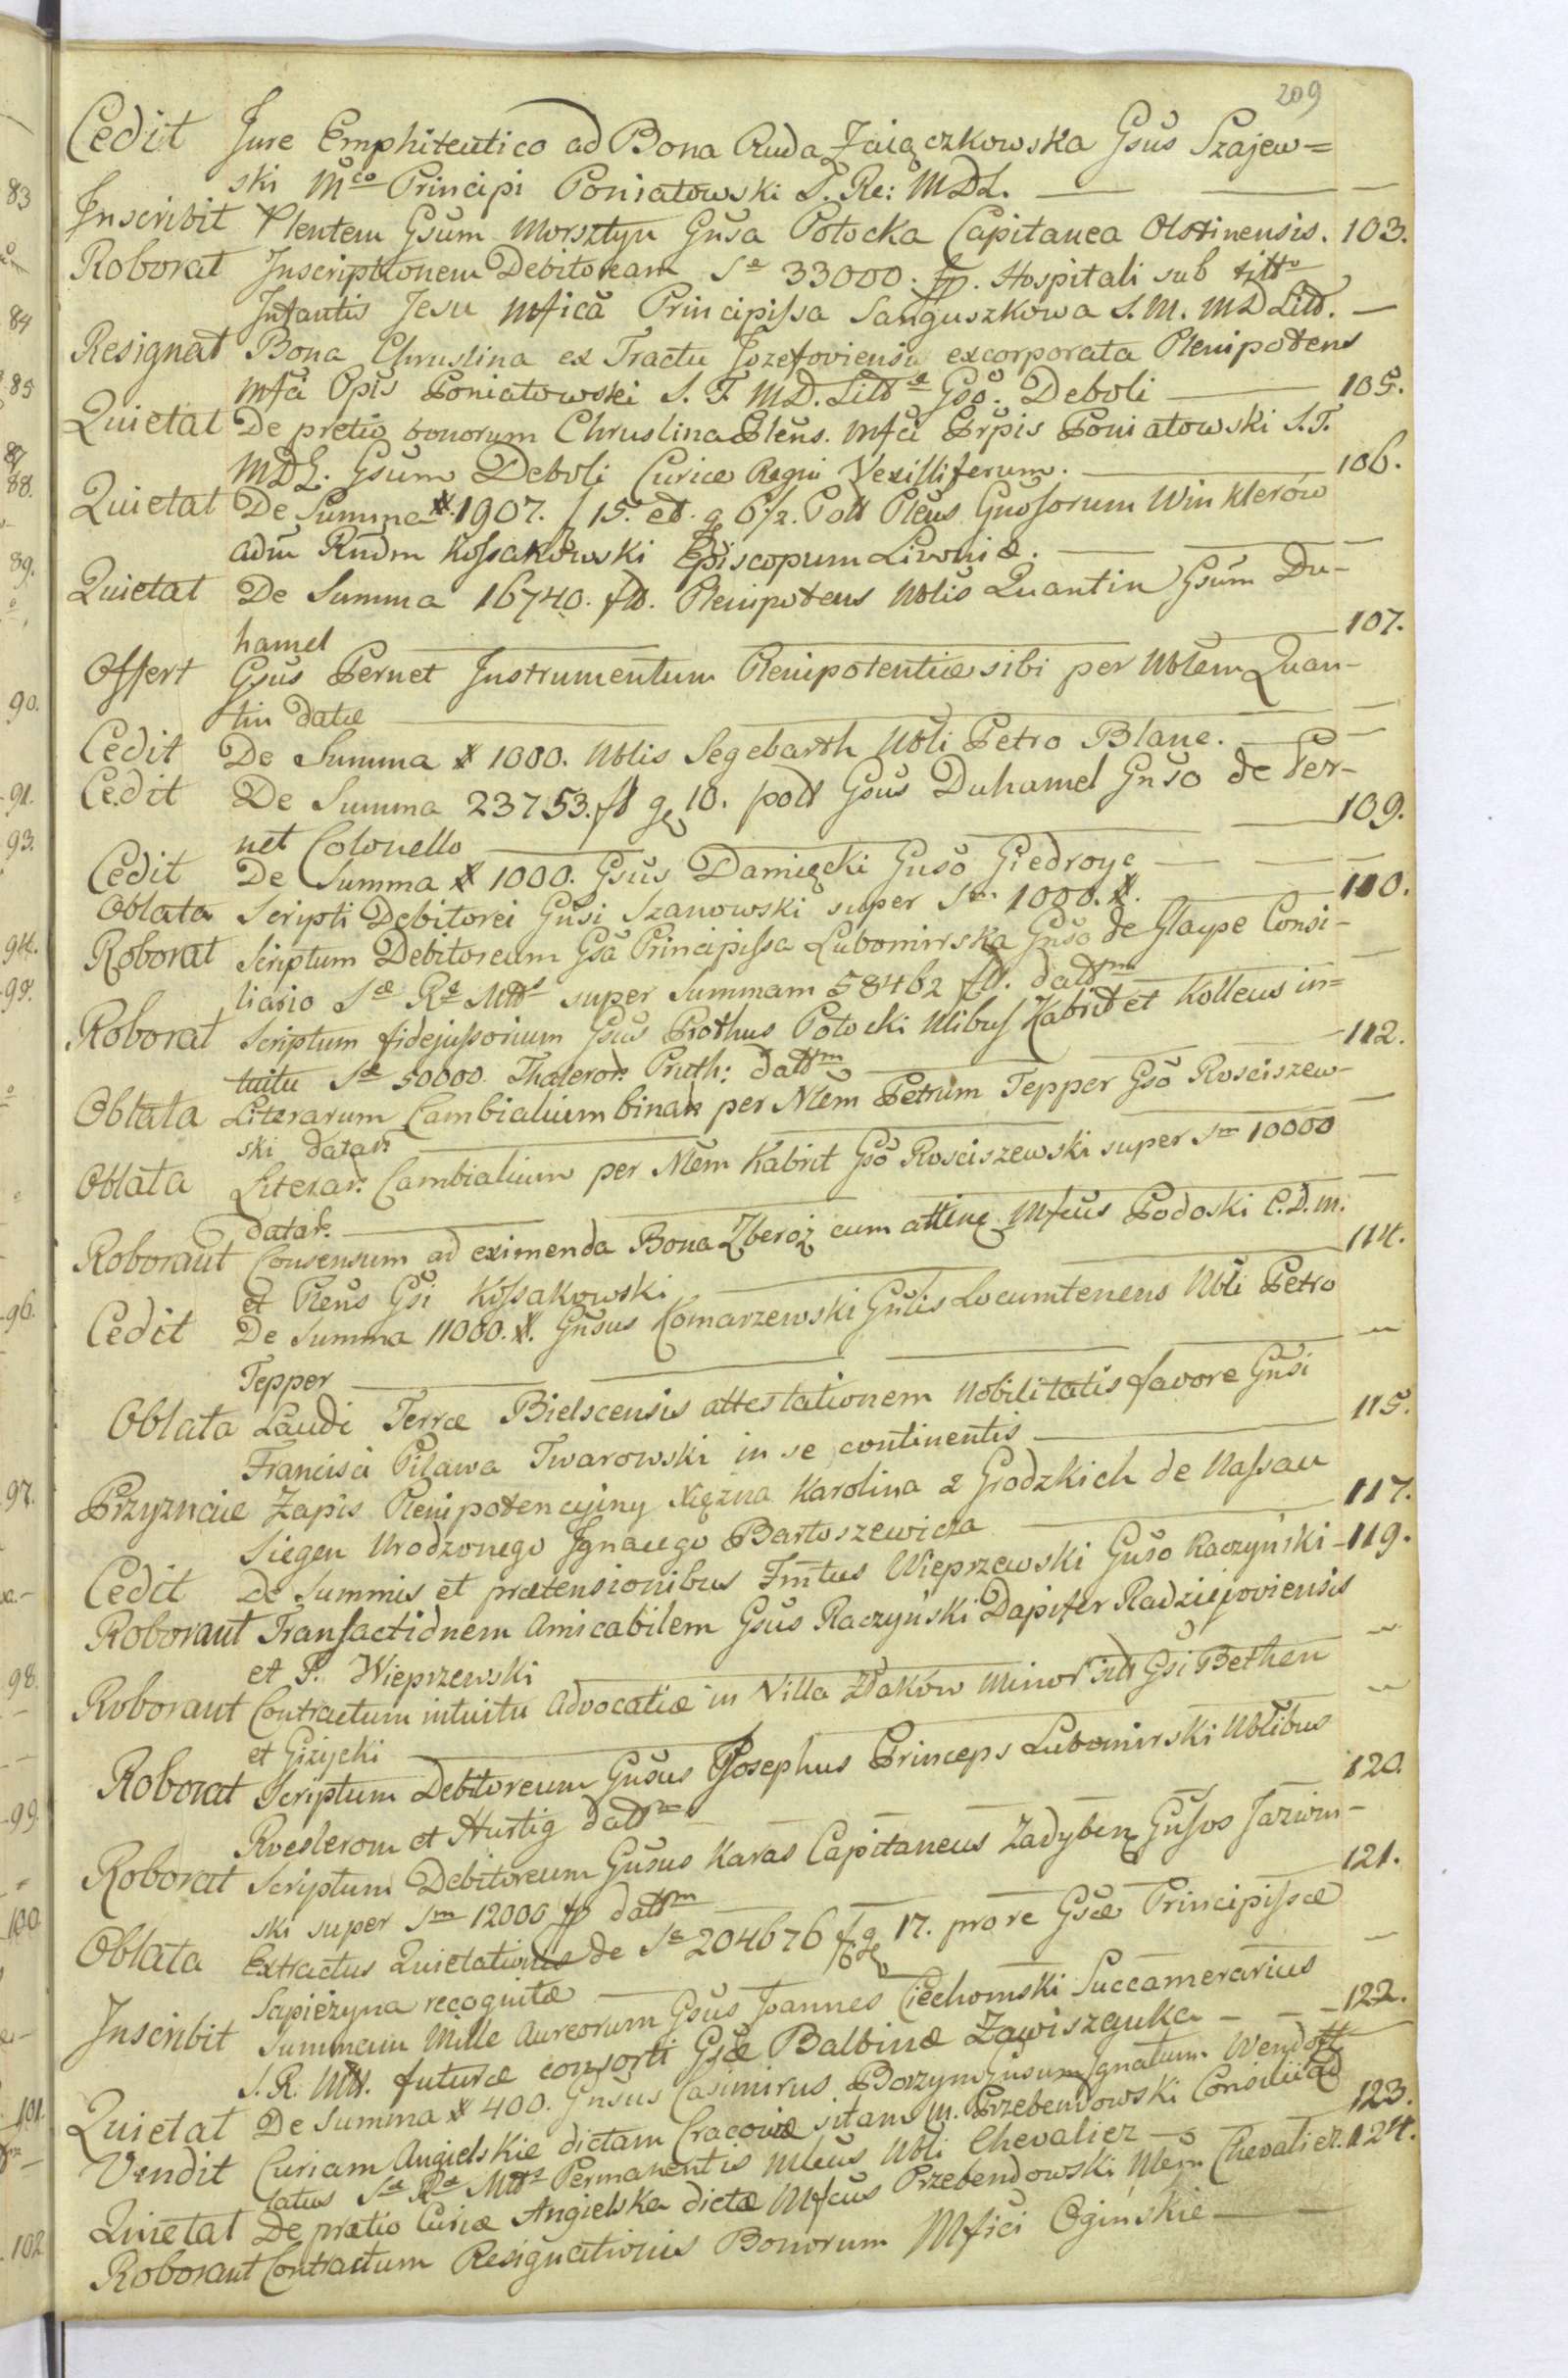 209
Cedit Jure Emphiteutico ad Bona Ruda Zaiączkowska Gsus Szajew=
ski Mco Principi Poniatowski S. Re: MDL. — —
Inscribit Plentem Gsum Morsztyn Gnsa Potocka Capitanea Olstinensis. 103.
Roborat Inscriptionem Debitoream Sae 33000. fp. Hospitali sub titto
Infantis Jesu Mfica Principissa Sanguszkowa S. M. MD Litt. —
Resignat Bona Chruslina ex Tractu Jozefoviensi excorporata Plenipotens
Mfci Ppis Poniatowski S. T. MD. Litt. Gso. Deboli — 105.
Quietat De pretio bonorum Chruslina Plens. Mfci Prpis Poniatowski S. T.
MDL. Gsum Deboli Curiæ Regni Vexilliferum. — 106.
Quietat De Summa #. 1907. f 15. et. g 6 1/2. Poll Plens Gnosorum Winklerów
adm Rndm Kossakowski Episcopum Livoniæ. — —
Quietat De Summa 16740. fll. Plenipotens Nblis Quantin Gsum Du-
hamel — 107.
Offert Gsus Pernet Instrumentum Plenipotentiæ sibi per Nblem Quan-
tin datæ — —
Cedit De Summa # 1000. Nblis Segebarth Nbli Petro Blanc. — —
Cedit De Summa 23753. fl g 10. poll Gsus Duhamel Gnso de Per-
net Colonello — 109.
Cedit De Summa # 1000. Gsus Damięcki Gnso Giedroyc — — —
Oblata Scripti Debitorei Gnsi Szanowski super Sm 1000. #. — 110.
Roborat Scriptum Debitoreum Gsa Principissa Lubomirska Gnso de Glaype Consi-
liario Sæ Ræ Mttis super Summam 58462 fll. dattm —
Roborat Scriptum fidejussorium Gsus Prothus Potocki Nlibus Kabrit et Kolleus in=
tuitu Sæ 50000. Thaleror. Pruth: dattm — 112.
Oblata Literarum Cambialium binar. per Nlem Petrum Tepper Gso Rosciszew-
ski datar. — —
Oblata Literar. Cambialium per Nlem Kabrit Gso Rosciszewski super Sm 10000
datar. — —
Roborant Consensum ad eximenda Bona Zberoż cum attinę Mfcus Podoski C. D. M.
et Plens Gsi Kossakowski — 114.
Cedit De Summa 11000. #. Gnsus Komarzewski Gnlis Locumtenens Nbli Petro
Tepper — —
Oblata Laudi Terræ Bielscensis attestationem Nobilitatis favore Gnsi
Francisci Pilawa Twarowski in se continentis — 115.
Przyznaie Zapis Plenipotencyiny Xiężna Karolina z Grodzkich de Nassau
Siegen Urodzonego Ignacego Bartoszewicza — 117.
Cedit De Summis et prætensionibus Fmtus Wieprzewski Gnso Raczyński - 119.
Roborant Transactionem Amicabilem Gsus Raczyński Dapifer Radziejoviensis
et P. Wieprzewski — —
Roborant Contractum intuitu Advocatiæ in Villa Złaków Minor Gsi Bethen
et Giżycki — —
Roborat Scriptum Debitoreum Gnsus Josephus Princeps Lubomirski Nblibus
Roeslerom et Hurtig dattm — 120.
Roborat Scriptum Debitoreum Gnsus Karas Capitaneus Zadyben Gnsos Jazwin-
ski super Sm 12000 fp dattm — 121.
Oblata Extractus Quietationis de Sæ 204676 f. g. 17. pro re Gsæ Principissæ
Sapieżyna recognitæ — —
Inscribit Summam Mille Aureorum Gsus Joannes Ciechomski Succamerarius
S. R. Mtt. futuræ consorti Gsæ Balbinæ Zawiszanka — — 122.
Quietat De Summa # 400. Gnsus Casimirus Borzym Gnsum Ignatum Wendoff
Vendit Curiam Angielskie dictam Cracoviæ sitam M. Przebendowski Consilii ad
latus Sæ Ræ Mttis Permanentis Mbus Nbli Chevalier — 123.
Quietat De prætio Curiæ Angielska dictæ Mfcus Przebendowski Nlem Chevalier. 124.
Roborant Contractum Resignationis Bonorum Mfici Ogińskie — —
83
84
85
87
88.
89.
90.
91.
93.
94.
95.
96.
97.
98.
99.
100
101.
102